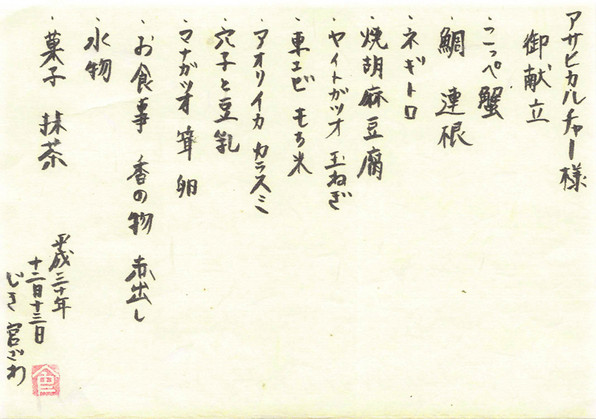 アサヒカルチャー様
御献立
・こっぺ蟹
鯛 連根
・ネギトロ
・焼胡麻豆腐
・ヤイトガツオ 玉ねぎ
・車エビ もち米
・アオリイカ カラスミ
・穴子と豆乳
・マナガツオ 茸 卵
・お食事 香の物 赤出し
・水物
・菓子 抹茶
平成三十年
十二月十三日
じき 宮ざわ
宮